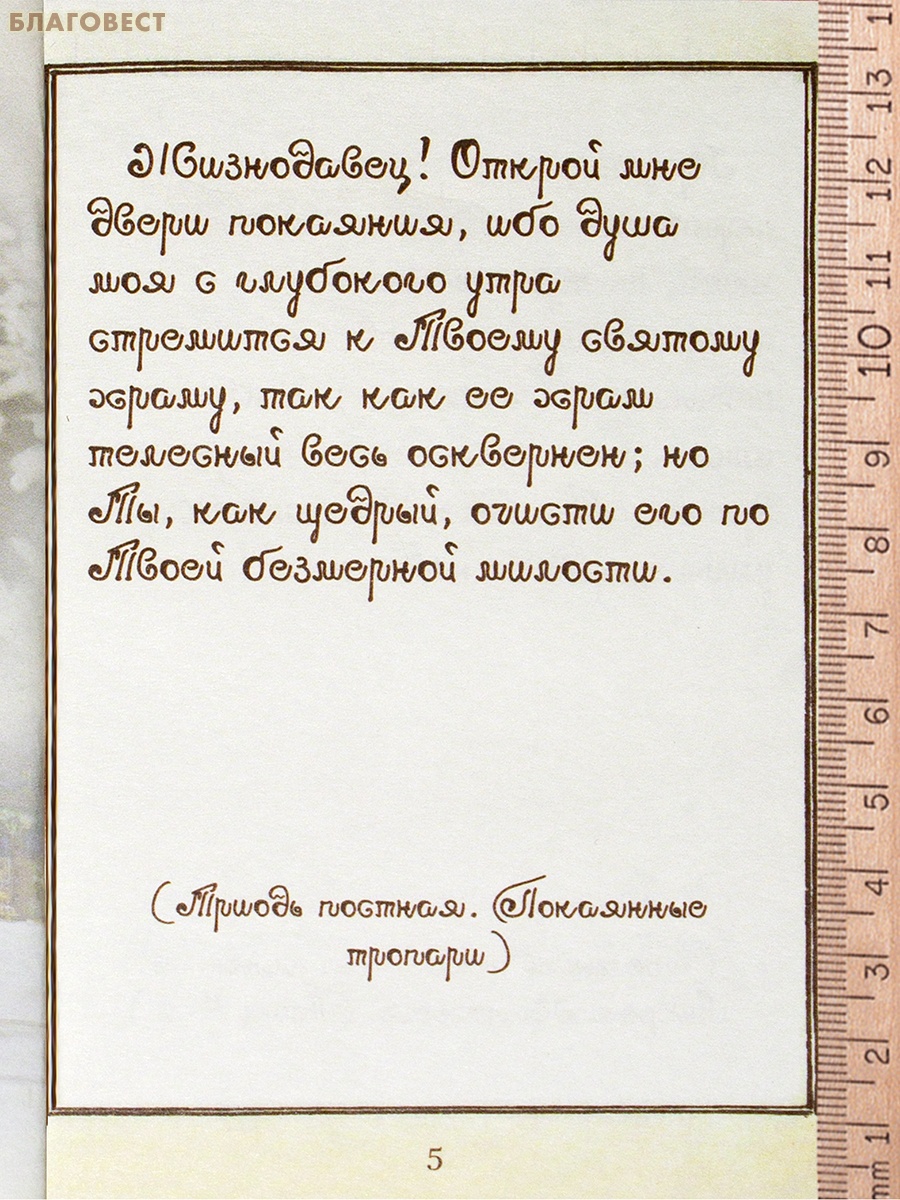 БЛАГОВЕСТ
Жизнодавец! Открой мне
двери покаяния, ибо душа
моя с глубокого утра
стремится к Твоему святому
храму, так как ее храм
телесный весь осквернен; но
Ты, как щедрый, очисти его по
Твоей безмерной милости.
(Триодь постная. Покаянные
тропари)
5
1
13
12
11
10
9
8
7
6
5
4
3
2
1
mm